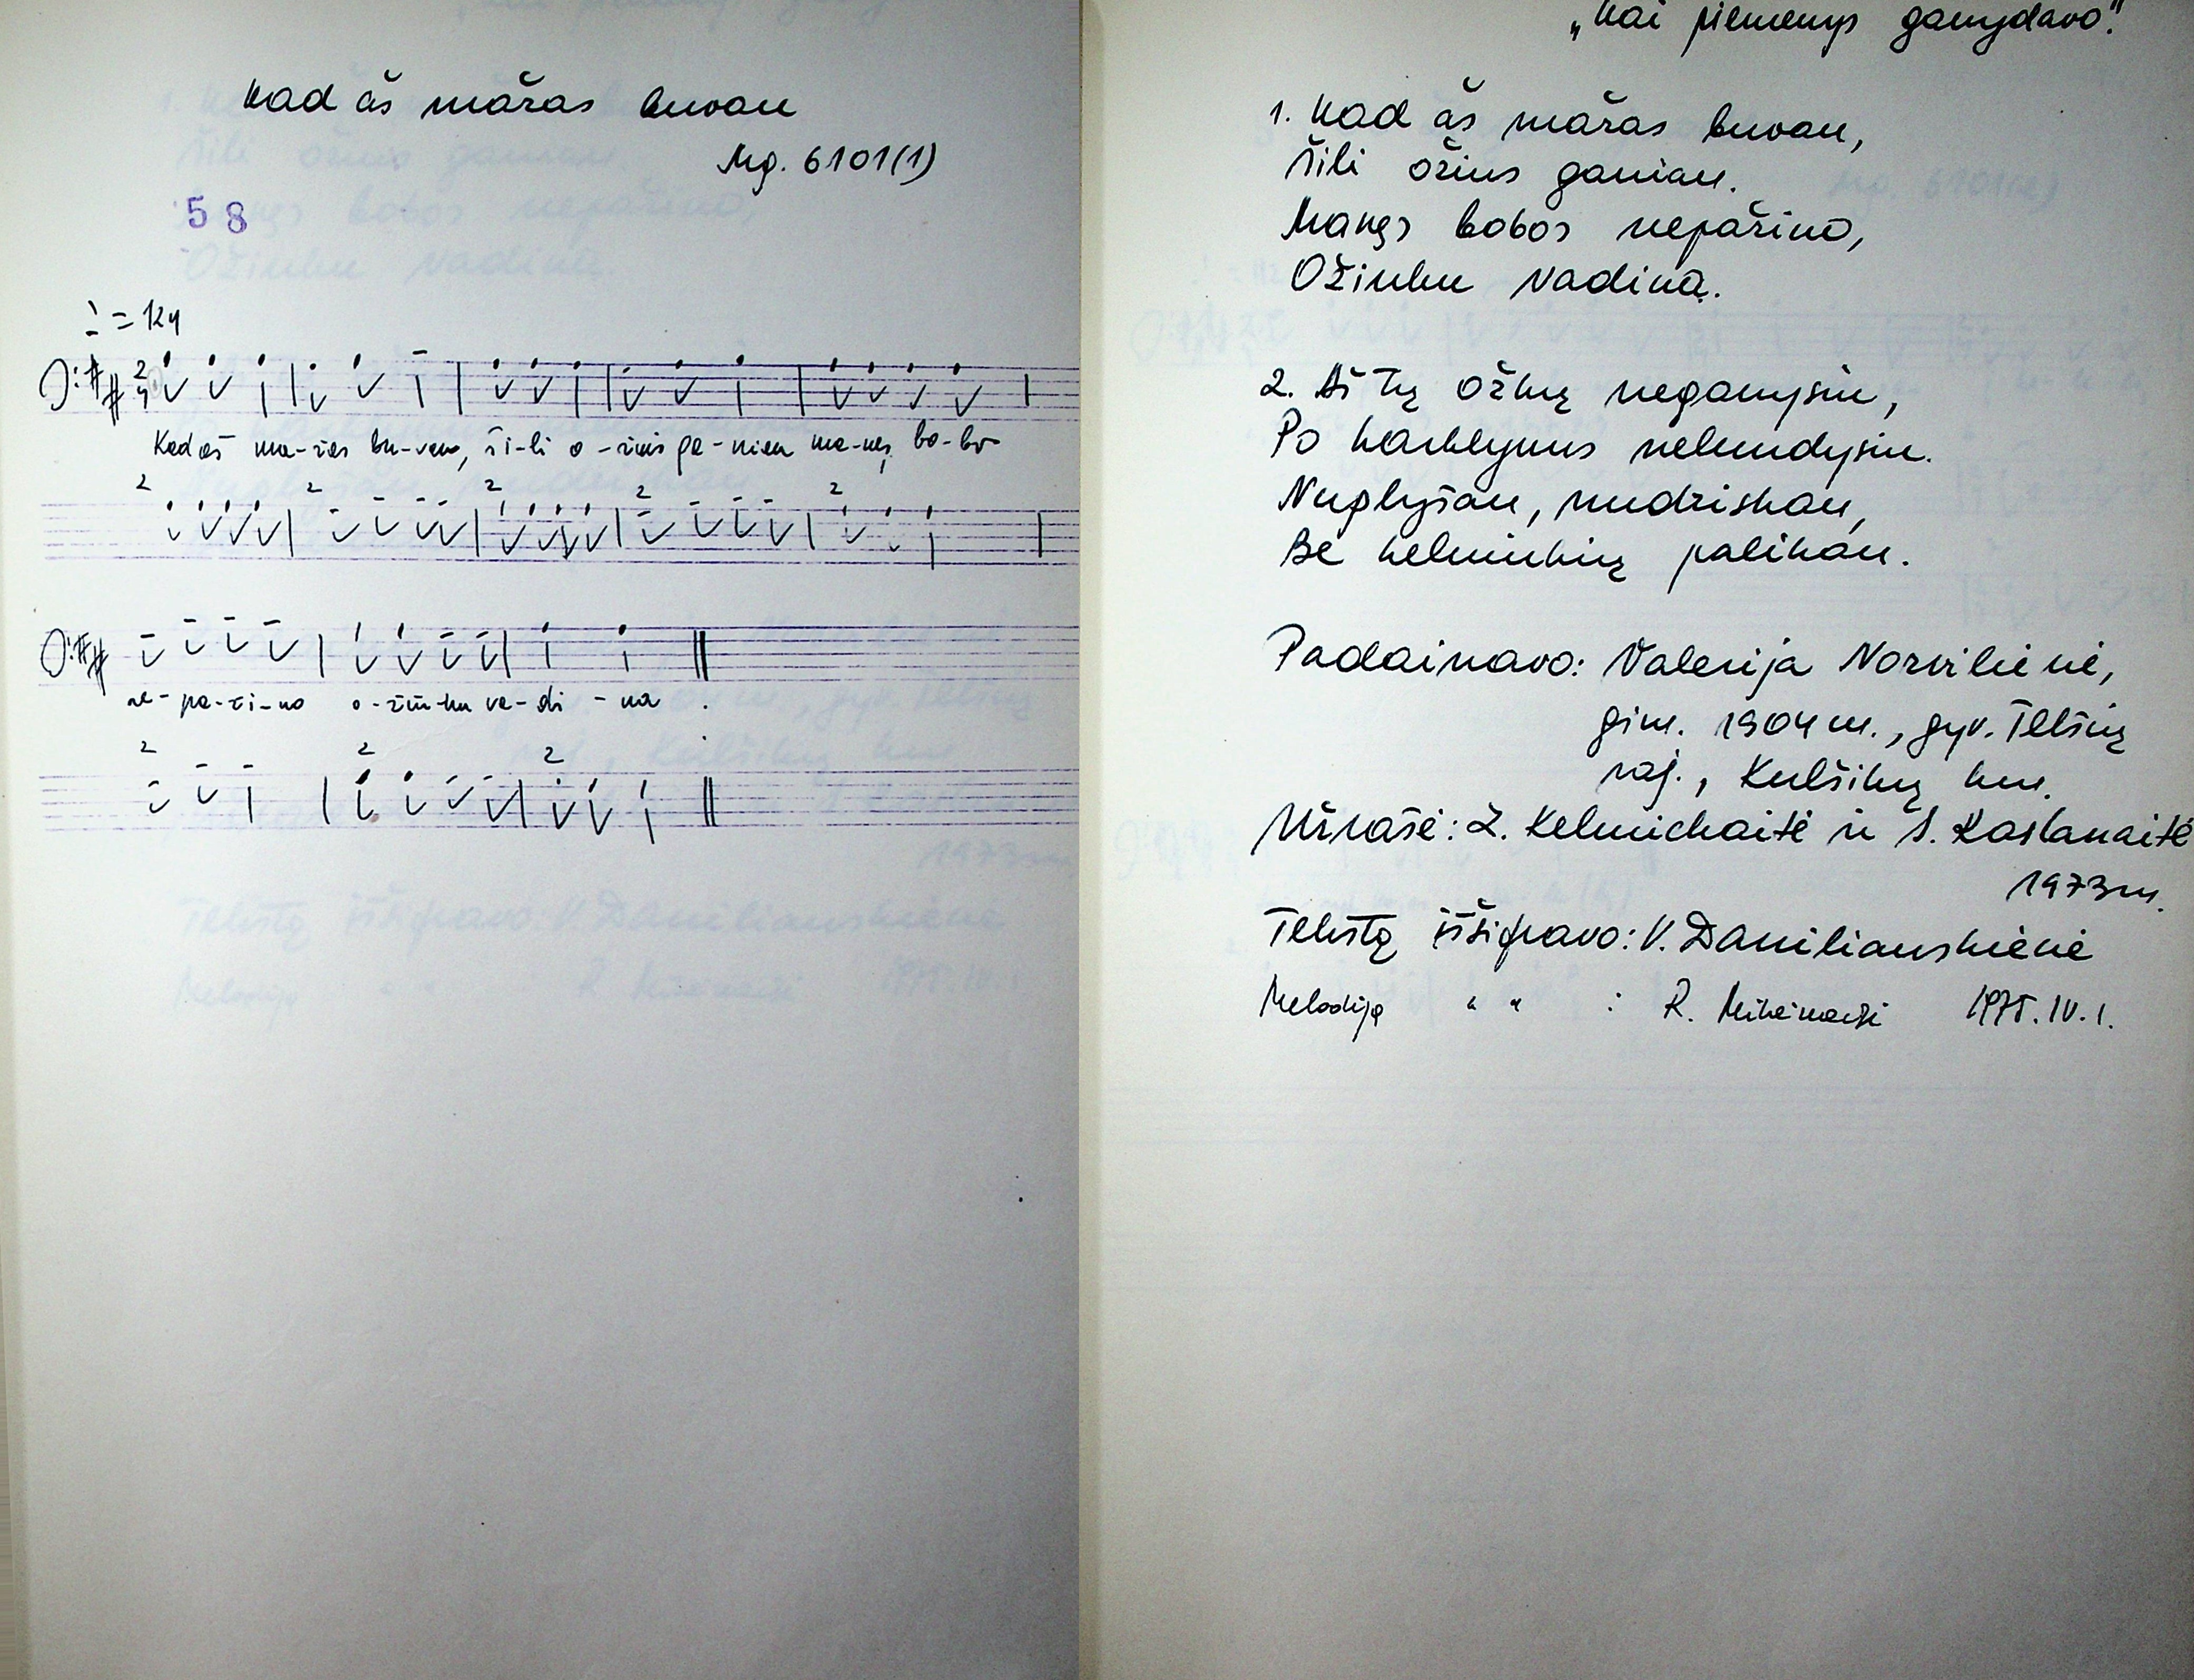 Kad aš mãžas buvau
Mg. 6101(1)
58
= 124
2
4
Kad aš ma-žas bu-vau, ši-li o-žius ga-niau ma-nęs bo-bo
2 2 2 2 2
ne-pa-ži-no o-žiu-ku va-di-na.
2 2 2
„Kai piemenys ganydavo."
1. Kad aš mãžas buvau,
Šili ožius ganiau.
Manęs bobos nepažino,
Ožiuku vadina.
2. Aš tų ožkų neganysiu,
Po karklynus nelundysiu.
Nuplyšau, nudriskau,
Be kelnikių palikau.
Padainavo: Valerija Norvilienė,
gim. 1904 m., gyv. Telšių
raj., Kulšikų km.
Užrašė: L. Kelmickaitė ir S. Kaslanaitė
1973 m.
Tekstą iššifravo: V. Daniliauskienė
Melodiją " " : R. 1975.IV.1.